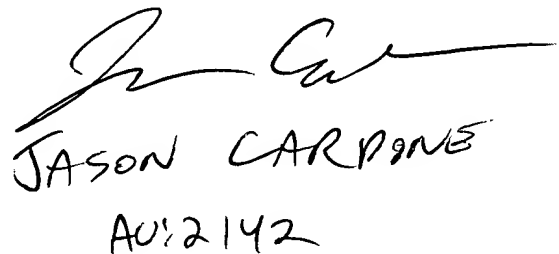 JASON CARDONE
AU:2142